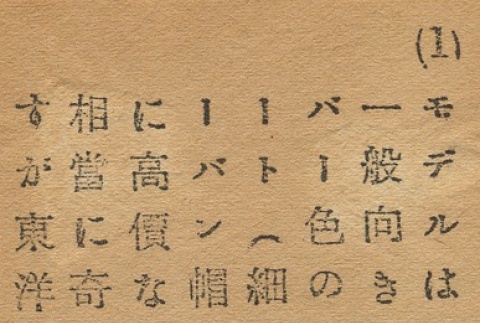 (1)
モデルは
一般向き
バー色の
ート︵細
ーバン帽
に高價な
相當に奇
すが東洋